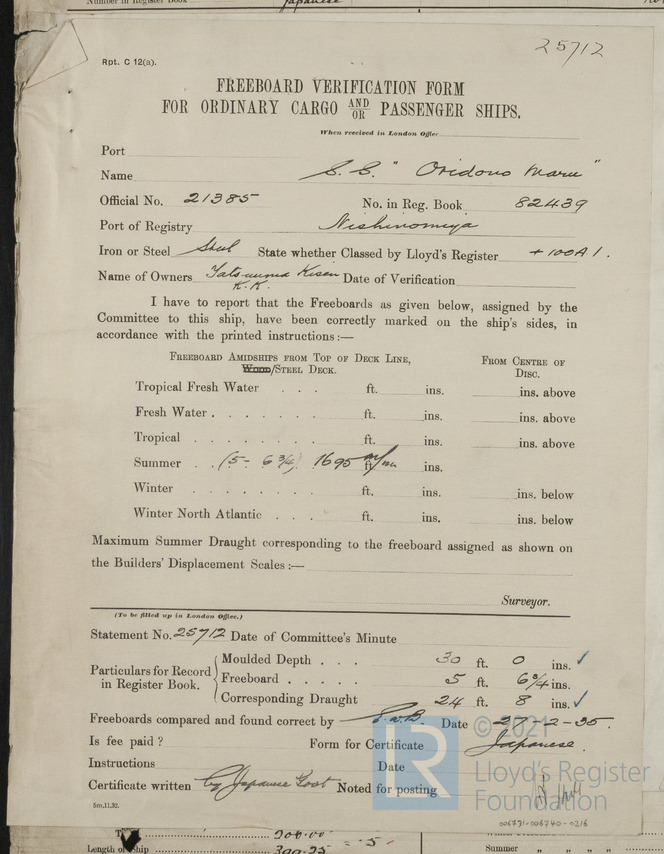 Number in Register Book Japanese
25712
Rpt. C 12(a).
FREEBOARD VERIFICATION FORM
FOR ORDINARY CARGO AND/OR PASSENGER SHIPS.
When received in London Office
Port
Name S.S. " Oridono Maru "
Official No. 21385 No. in Reg. Book 82439
Port of Registry Nishinomiya
Iron or Steel Steel State whether Classed by Lloyd's Register +100A1.
Name of Owners Tatsuuma Kisen K.K. Date of Verification
I have to report that the Freeboards as given below, assigned by the
Committee to this ship, have been correctly marked on the ship's sides, in
accordance with the printed instructions :—
FREEBOARD AMIDSHIPS FROM TOP OF DECK LINE, FROM CENTRE OF
WOOD/STEEL DECK. DISC.
Tropical Fresh Water . . . ft. ins. ins. above
Fresh Water . . . . . . . ft. ins. ins. above
Tropical . . . . . . . . ft. ins. ins. above
Summer . . (5- 6 3/4) 1695 m/m ft. ins.
Winter . . . . . . . . ft. ins. ins. below
Winter North Atlantic . . . ft. ins. ins. below
Maximum Summer Draught corresponding to the freeboard assigned as shown on
the Builders' Displacement Scales :—
Surveyor.
(To be filled up in London Office.)
Statement No. 25712 Date of Committee's Minute
Particulars for Record in Register Book.
Moulded Depth . . . 30 ft. 0 ins. ✓
Freeboard . . . . . 5 ft. 6 3/4 ins.
Corresponding Draught 24 ft. 8 ins. ✓
Freeboards compared and found correct by Date 27-2-35.
Is fee paid ? Form for Certificate Japanese.
Instructions Date
Certificate written by Japanese Govt Noted for posting
5m,11,32.
© 2021
LR
Lloyd's Register
Foundation
006731-006740-0216
200.00
Length of Ship 390.25 = .5
Winter
Summer " " " "